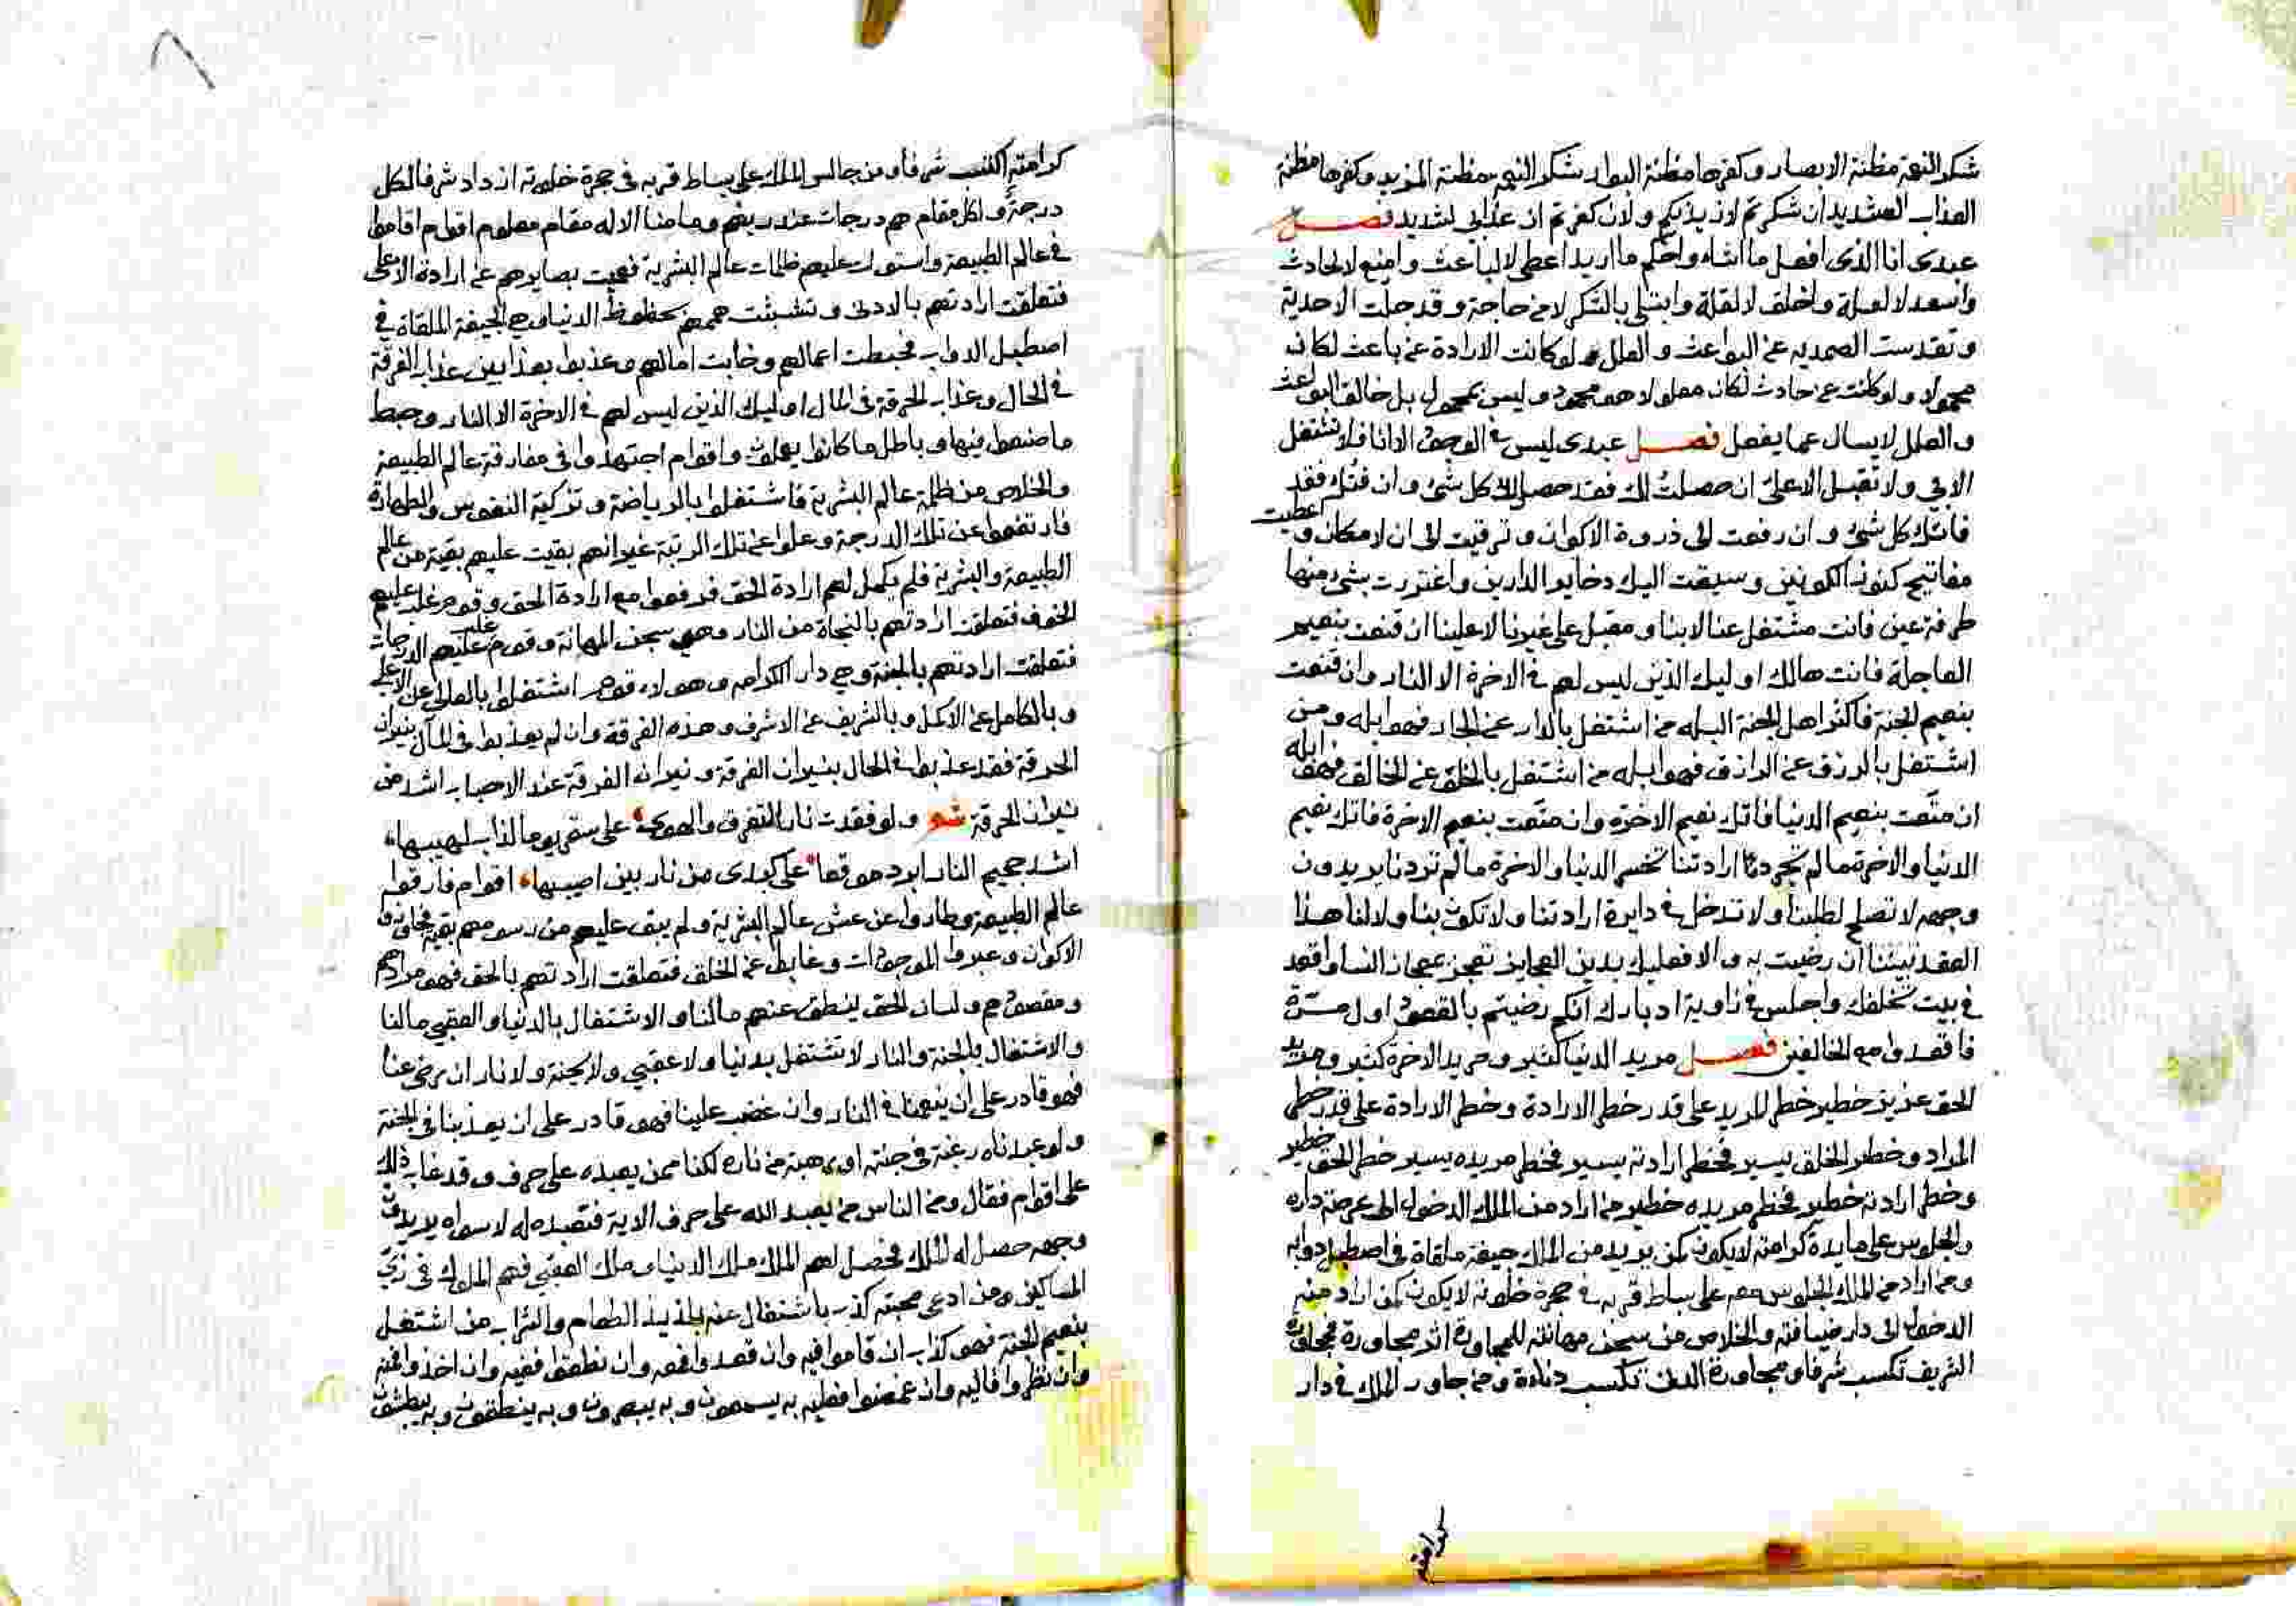 شكر النعمة مظنة الابصار وكفرها مظنة البوار شكر النعمة مظنة المزيد وكفرها مظنة
العذاب الشديد ان شكرتم لازيدنكم ولان كفرتم ان عذابي لشديد فصل
عبدى انا الذى افعل ما اشاء واحكم ما اريد اعطى لا لباعث وامنع لا لحادث
واسعد لا لعلة واخلق لا لقلة وابتلى بالشكر لا من حاجة وقد جلت الاحدية
وتقدست الصمديه عن البواعث والعلل ولو كانت الارادة عن باعث لكان
محمولا ولو كانت عن حادث لكان معلولا هو محمود وليس بمحمول بل خالق البواعث
والعلل لا يسال عما يفعل فصل عبدى ليس فى الوجود الا انا فلا تشتغل
الا بى ولا تقبل الا على ان حصلت لك فقد حصل لك كل شئ وان فتك فقد
فاتك كل شئ وان رفعت الى ذروة الاكوان وترقيت الى ان لا مكان واعطيت
مفاتيح كنوز الكونين وسيقت اليك دخاير الدارين واغتررت بشئ منها
طرفة عين فانت مشتغل عنا لا بنا ومقبل على غيرنا لا علينا ان قنعت بنعيم
العاجلة فانت هالك اوليك الذين ليس لهم فى الاخرة الا النار وان قنعت
بنعيم الجنة فاكثر اهل الجنة البله من اشتغل بالدار عن الجار فهو ابله ومن
اشتغل بالرزق عن الرازق فهو ابله من اشتغل بالخلق عن الخالق فهو ابله
ان متعت بنعيم الدنيا فاتك نعيم الاخرة وان متعت بنعيم الاخرة فاتك نعيم
الدنيا والاخرة ما لم تجرد ارادتنا تخسر الدنيا والاخرة ما لم تردنا يريدون
وجهه لا تصلح لطلبنا ولا تدخل فى دايرة ارادتنا ولا تكون بنا ولا لنا هذا
العقد بيننا ان رضيت به والا فعليك بدين العجايز تعجز عجاز النسا واقعد
فى بيت تخلفك واجلس فى زاوية ادبارك انكم رضيتم بالقعود اول مرة
فاقعدوا مع الخالفين فصل مريد الدنيا كثير ومريد الاخرة كثير ومريد
الحق عزيز خطير خطر المريد على قدر خطر الارادة وخطر الارادة على قدر خطر
المراد وخطر الخلق يسير فخطر ارادته يسير فخطر مريده يسير خطر الحق خطير
وخطر ارادته خطير فخطر مريده خطير من اراد من الملك الدخول الى عرصة داره
والجلوس على مايدة كرامته لا يكون كمن يريد من الملك جيفة ملقاة فى اصطبل دوابه
ومن اراد من الملك الجلوس معه على بساط قربه فى حجرة خلوته لا يكون كمن اراد منه
الدخول الى دار ضيافته والخلاص من سجن مهانته للمجاورة اثر مجاورة مجاورة
الشريف تكسب شرفا ومجاورة الدنى تكسب دناءة ومن جاور الملك فى دار
كرامته
كرامته اكتسب شرفا ومن جالس الملك على بساط قربه فى حجرة خلوته ازداد شرفا لكل
درجة ولكل مقام هم درجات عند ربهم وما منا الا له مقام معلوم اقوام اقاموا
فى عالم الطبيعة واستولت عليهم ظلمات عالم البشرية فعميت بصايرهم عن ارادة الاعلى
فتعلقت ارادتهم بالادنى وتشبثت هممهم بحظوظ الدنيا وهى الجيفة الملقاة فى
اصطبل الدواب فحبطت اعمالهم وخابت امالهم وعذبوا بعذابين عذاب الفرقة
فى الحال وعذاب الحرقة فى المال اوليك الذين ليس لهم فى الاخرة الا النار وحبط
ما صنعوا فيها وباطل ما كانوا يعملون واقوام اجتهدوا فى مفارقة عالم الطبيعة
والخلاص من ظلمة عالم البشرية فاشتغلوا بالرياضة وتزكية النفوس والطهارة
فارتفعوا عن تلك الدرجة وعلوا عن تلك الرتبة غير انهم بقيت عليهم بقية من عالم
الطبيعة والبشرية فلم يكمل لهم ارادة الحق فدفعوا مع ارادة الحق وقوم غلب عليهم
الخوف فتعلقت ارادتهم بالنجاة من النار وهى سجن المهانة وقوم غلب عليهم الدرجات
فتعلقت ارادتهم بالجنة وهى دار الكرامه وهولاء قوم اشتغلوا بالعالى عن الاعلى
وبالكامل عن الاكمل وبالشريف عن الاشرف وهذه الفرقة وان لم يعذبوا فى المآل بنيران
الحرقة فقد عذبوا فى الحال بنيران الفرقة ونيران الفرقة عند الاحباب اشد من
نيران الحرقة شعر ولو فقدت نار التفرق والهوى على سقر يوما لذاب لهيبها
اشد جحيم النار ابرد موقعا على كبدى من نار بين اصيبها اقوام فارقوا
عالم الطبيعة وطاروا عن عش عالم البشرية ولم يبق عليهم من رسومهم بقية فجازوا
الاكوان وعبروا الموجودات وغابوا عن الخلق فتعلقت ارادتهم بالحق فهو مرادهم
ومقصودهم ولسان الحق ينطق عنهم ما لنا والاشتغال بالدنيا والعقبى ما لنا
والاشتغال بالجنة والنار لا نشتغل بدنيا ولا عقبى ولا بجنة ولا نار ان رضى عنا
فهو قادر على ان ينعمنا فى النار وان غضب علينا فهو قادر على ان يعذبنا فى الجنة
ولو عبدناه رغبة فى جنته او رهبة من ناره لكنا ممن يعبده على حرف وقد عاب ذلك
على اقوام فقال ومن الناس من يعبد الله على حرف الاية فنعبده له لا سواه يريدون
وجهه حصل له الملك فحصل لهم الملك ملك الدنيا وملك العقبى فهم الملوك فى زى
المساكين ومن ادعى محبته كذب باشتغال عنه بلذيذ الطعام والشراب من اشتغل
بنعيم الجنة فهو كذاب ان قاموا فبه وان قعدوا فمعه وان نطقوا ففيه وان اخذوا فمنه
وان نظروا فاليه وان غمضوا فعليه به يسمعون وبه يبصرون وبه ينطقون وبه يبطشون